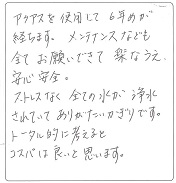 アクアスを使用して6年めが
経ちます。メンテナンスなども
全てお願いできて楽なうえ、
安心安全。
ストレスなく全ての水が浄水
されていてありがたいかぎりです。
トータル的に考えると
コスパは良いと思います。